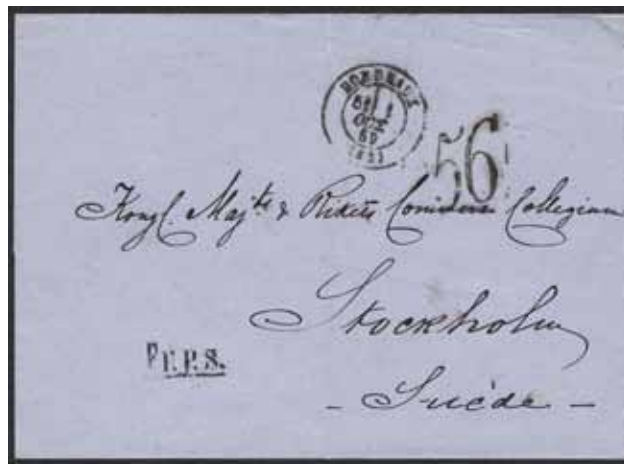 BORDEAUX
OCT.
69
(32)
56
Kongl. Maj:ts & Rikets Commerce Collegium
Stockholm
F.P.S.
- Suède -